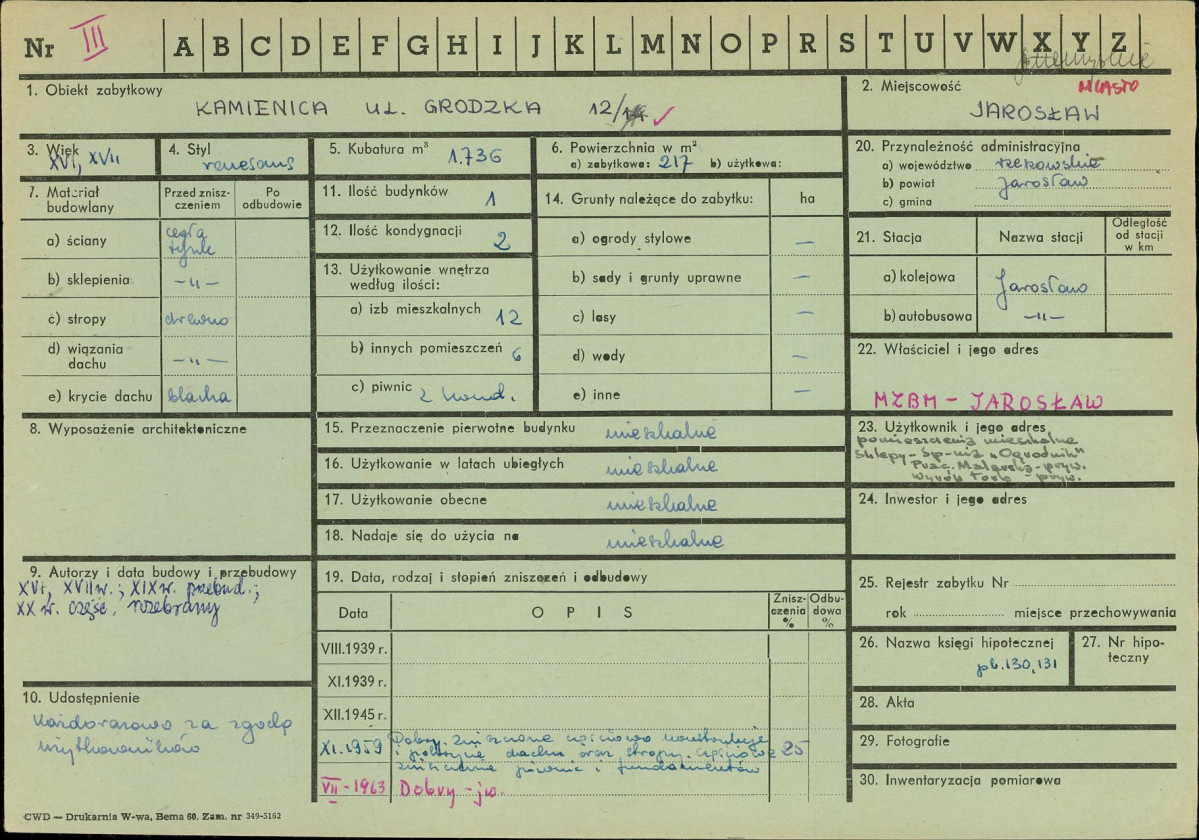 Nr III A B C D E F G H I J K L M N O P R S T U V W X Y Z
MIASTO
1. Obiekt zabytkowy KAMIENICA UL. GRODZKA 12/14
2. Miejscowość JAROSŁAW
3. Wiek XVI, XVII
4. Styl renesans
5. Kubatura m³ 1.736
6. Powierzchnia w m²
a) zabytkowa: 217 b) użytkowa:
7. Materiał budowlany
Przed zniszczeniem
Po odbudowie
a) ściany cegła tynk
b) sklepienia —„—
c) stropy drewno
d) wiązania dachu —„—
e) krycie dachu blacha
11. Ilość budynków 1
12. Ilość kondygnacji 2
13. Użytkowanie wnętrza według ilości:
a) izb mieszkalnych 12
b) innych pomieszczeń 6
c) piwnic 2 kond.
14. Grunty należące do zabytku: ha
a) ogrody stylowe —
b) sady i grunty uprawne —
c) lasy —
d) wody —
e) inne —
20. Przynależność administracyjna
a) województwo rzeszowskie
b) powiat Jarosław
c) gmina
21. Stacja
Nazwa stacji
Odległość od stacji w km
a) kolejowa Jarosław
b) autobusowa —„—
22. Właściciel i jego adres
MZBM - JAROSŁAW
8. Wyposażenie architektoniczne
15. Przeznaczenie pierwotne budynku mieszkalne
16. Użytkowanie w latach ubiegłych mieszkalne
17. Użytkowanie obecne mieszkalne
18. Nadaje się do użycia na mieszkalne
23. Użytkownik i jego adres
pomieszczenia mieszkalne
Sklepy - Sp-nia „Ogrodnik"
Prac. Malarska - pryw.
wyrób toreb - pryw.
24. Inwestor i jego adres
9. Autorzy i data budowy i przebudowy
XVI, XVII w.; XIX w. przebud.;
XX w. część. rozebrany
10. Udostępnienie
Każdorazowo za zgodą
użytkowników
19. Data, rodzaj i stopień zniszczeń i odbudowy
Data
OPIS
Zniszczenia %
Odbudowa %
VIII.1939 r.
XI.1939 r.
XII.1945 r.
XI.1959 Dobry, zniszczone częściowo konstrukcje
i pokrycie dachu oraz stropy, częściowe 25
zniszczenie piwnic i fundamentów
VII - 1963 Dobry - jw.
25. Rejestr zabytku Nr
rok miejsce przechowywania
26. Nazwa księgi hipotecznej
pb. 130, 131
27. Nr hipoteczny
28. Akta
29. Fotografie
30. Inwentaryzacja pomiarowa
CWD — Drukarnia W-wa, Bema 60. Zam. nr 349-5162